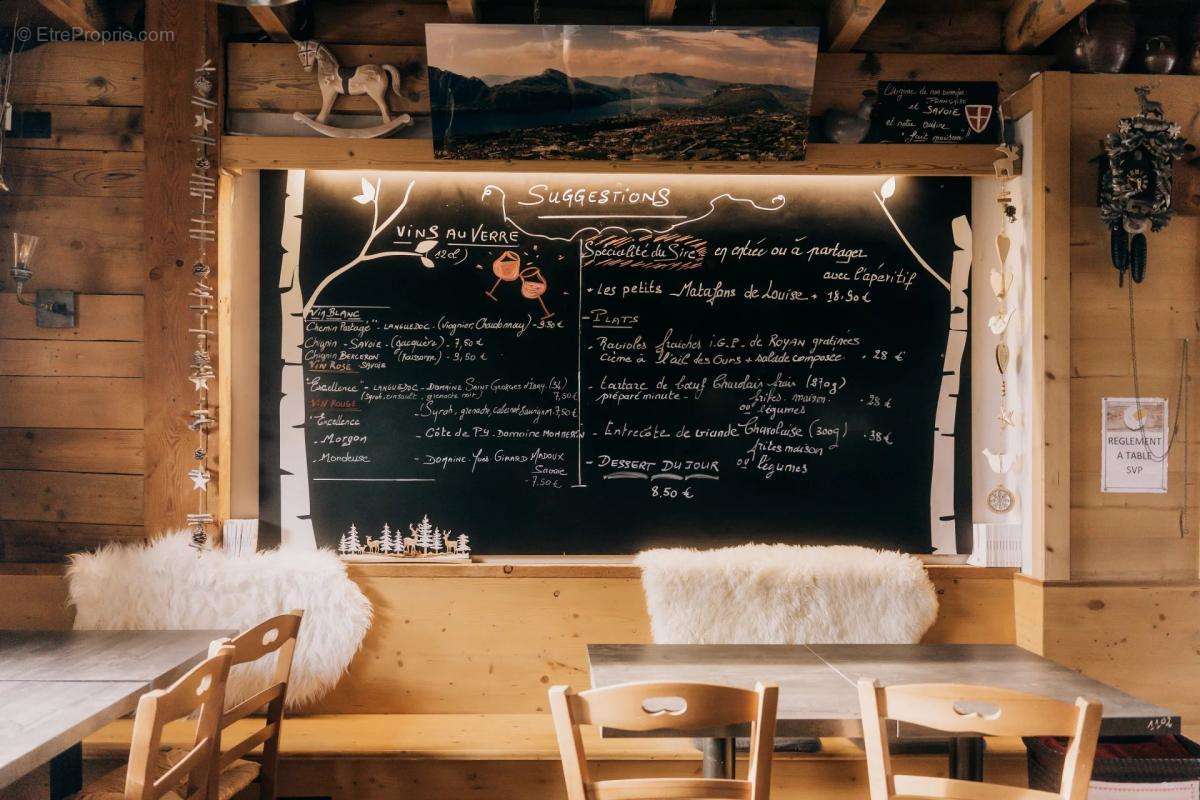 © EtreProprio.com
L'origine de nos viandes
FRANÇAISE
et SAVOIE
et notre cuisine
"fait maison"
SUGGESTIONS
VINS AU VERRE
12cl)
VIN BLANC
Chemin Partagé" - LANGUEDOC - (Viognier, Chardonnay) - 9,50 €
Chignin - SAVOIE - (Jacquère) - 7,50 €
Chignin BERGERON (Roussanne) - 9,50 €
VIN ROSE SAVOIE
"Excellence" - LANGUEDOC - DOMAINE SAINT GEORGES D'IBRY. (34)
(Syrah, cinsault, grenache noir) 7,50 €
VIN ROUGE
"Excellence - Syrah, grenache, cabernet Sauvignon 7,50 €
- Morgon - Côte de PY. Domaine MOMMERON
- Mondeuse - DOMAINE Yves GIRARD MADOUX
Savoie
- 7,50 €
Spécialité du Sire en entrée ou à partager
avec l'apéritif
+ Les petits Matafans de Louise + 18,90 €
- PLATS
- Ravioles fraîches i.G.P. de ROYAN gratinées
Crème à l'ail des Ours + salade composée . 28 €
- tartare de bœuf Charolais frais (270g)
préparé minute - frites maison . 28 €
ou légumes
- Entrecôte de viande Charolaise (300g) . 38 €
frites maison
ou légumes
- DESSERT DU JOUR
8,50 €
REGLEMENT
A TABLE
SVP
1102